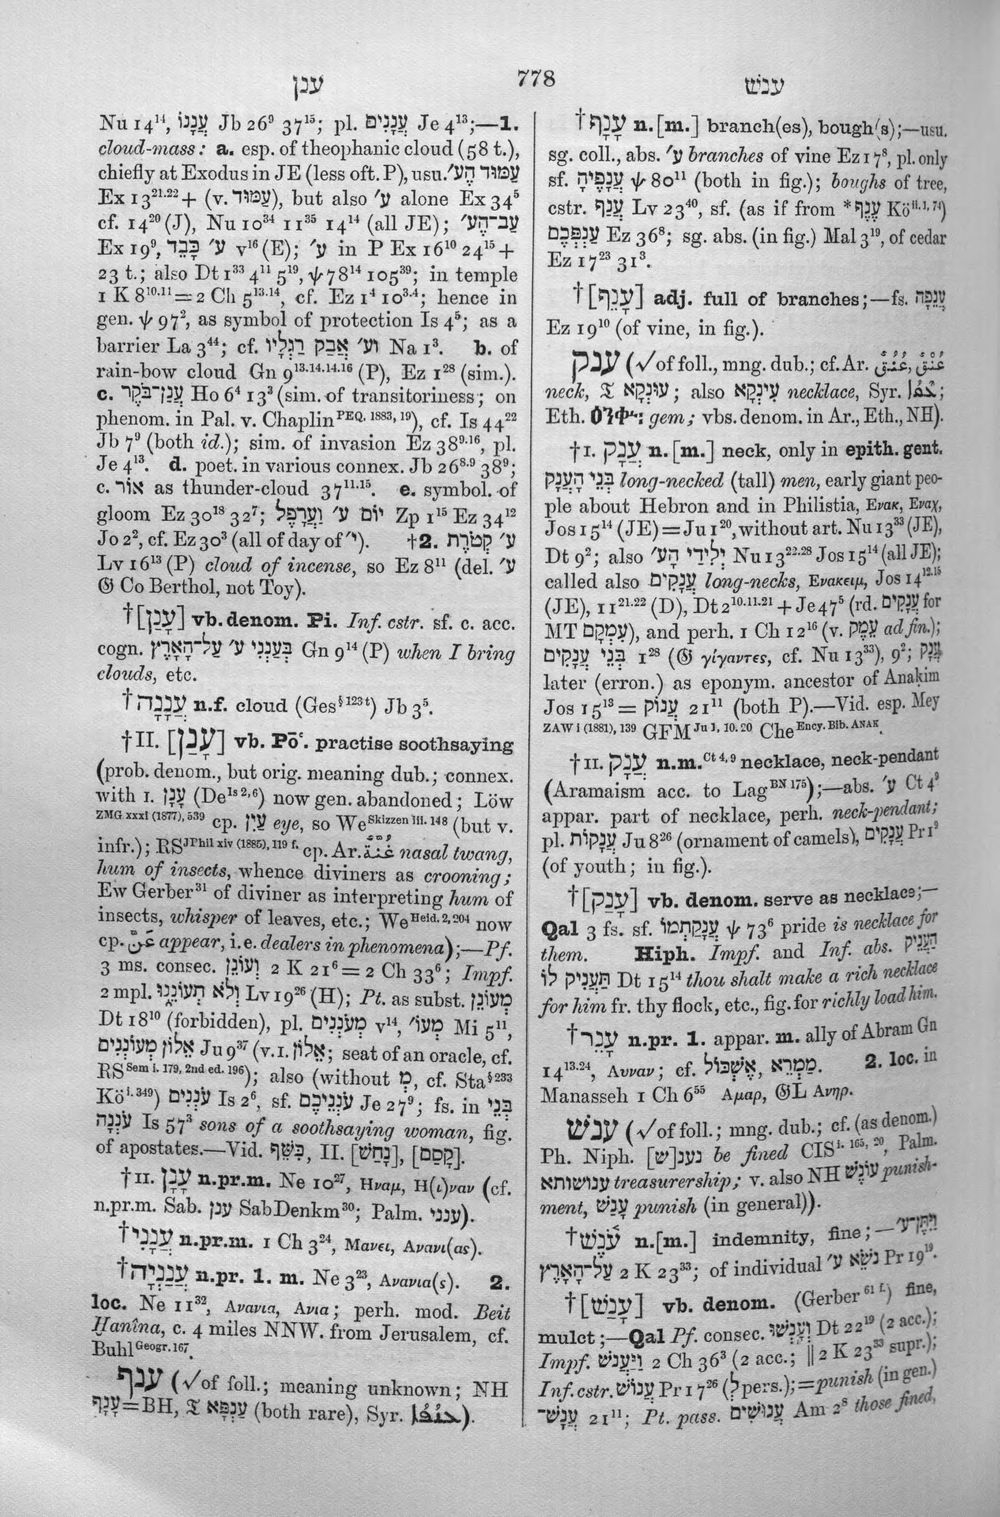 ענן 778 ענש
Nu 14¹⁴, עֲנָנוֹ Jb 26⁹ 37¹⁵; pl. עֲנָנִים Je 4¹³;—1.
cloud-mass: a. esp. of theophanic cloud (58 t.),
chiefly at Exodus in JE (less oft. P), usu. עַמּוּד הֶעָ׳
Ex 13²¹·²² + (v. עַמּוּד), but also עָ׳ alone Ex 34⁵
cf. 14²⁰ (J), Nu 10³⁴ 11²⁵ 14¹⁴ (all JE); עַב־הֶעָ׳
Ex 19⁹, עָ׳ כָּבֵד v¹⁶ (E); עָ׳ in P Ex 16¹⁰ 24¹⁵ +
23 t.; also Dt 1³³ 4¹¹ 5¹⁹, ψ 78¹⁴ 105³⁹; in temple
1 K 8¹⁰·¹¹ = 2 Ch 5¹³·¹⁴, cf. Ez 1⁴ 10³·⁴; hence in
gen. ψ 97², as symbol of protection Is 4⁵; as a
barrier La 3⁴⁴; cf. וְעָ׳ אֲבַק רַגְלָיו Na 1³. b. of
rain-bow cloud Gn 9¹³·¹⁴·¹⁴·¹⁶ (P), Ez 1²⁸ (sim.).
c. עֲנַן־בֹּקֶר Ho 6⁴ 13³ (sim. of transitoriness; on
phenom. in Pal. v. Chaplin PEQ. 1883, 19), cf. Is 44²²
Jb 7⁹ (both id.); sim. of invasion Ez 38⁹·¹⁶, pl.
Je 4¹³. d. poet. in various connex. Jb 26⁸·⁹ 38⁹;
c. אוֹר as thunder-cloud 37¹¹·¹⁵. e. symbol. of
gloom Ez 30¹⁸ 32⁷; יוֹם עָ׳ וַעֲרָפֶל Zp 1¹⁵ Ez 34¹²
Jo 2², cf. Ez 30³ (all of day of י״). †2. עֲ׳ קְטֹרֶת
Lv 16¹³ (P) cloud of incense, so Ez 8¹¹ (del. עֲ׳
𝔊 Co Berthol, not Toy).
†[עָנַן] vb. denom. Pi. Inf. cstr. sf. c. acc.
cogn. בְּעַנְנִי עָ׳ עַל־הָאָרֶץ Gn 9¹⁴ (P) when I bring
clouds, etc.
†עֲנָנָה n.f. cloud (Ges § 123 t) Jb 3⁵.
†II. [עָנַן] vb. Pō‛. practise soothsaying
(prob. denom., but orig. meaning dub.; connex.
with I. עָנָן (De Is 2, 6) now gen. abandoned; Löw
ZMG xxxi (1877), 539 cp. עַיִן eye, so We Skizzen iii. 148 (but v.
infr.); RS JPhil xiv (1885), 119 f. cp. Ar. غُنَّة nasal twang,
hum of insects, whence diviners as crooning;
Ew Gerber 31 of diviner as interpreting hum of
insects, whisper of leaves, etc.; We Heid. 2, 204 now
cp. عَنَّ appear, i.e. dealers in phenomena);—Pf.
3 ms. consec. וְעוֹנֵן 2 K 21⁶ = 2 Ch 33⁶; Impf.
2 mpl. וְלֹא תְעוֹנֵנוּ Lv 19²⁶ (H); Pt. as subst. מְעוֹנֵן
Dt 18¹⁰ (forbidden), pl. מְעֹנְנִים v¹⁴, מְעוֹ׳ Mi 5¹¹,
אֵלוֹן מְעוֹנְנִים Ju 9³⁷ (v. I. אֵלוֹן; seat of an oracle, cf.
RS Sem i. 179, 2nd ed. 196); also (without מְ, cf. Sta § 233
Kö i. 349) עֹנְנִים Is 2⁶, sf. עֹנְנֵיכֶם Je 27⁹; fs. in בְּנֵי
עֹנְנָה Is 57³ sons of a soothsaying woman, fig.
of apostates.—Vid. כִּשֵּׁף, II. [נָחַשׁ], [קָסַם].
†II. עָנָן n.pr.m. Ne 10²⁷, Ηναμ, Η(ι)ναν (cf.
n.pr.m. Sab. ענן SabDenkm³⁰; Palm. ענני).
†עֲנָנִי n.pr.m. 1 Ch 3²⁴, Μανει, Ανανι(ας).
†עֲנַנְיָה n.pr. 1. m. Ne 3²³, Ανανια(ς). 2.
loc. Ne 11³², Ανανια, Ανια; perh. mod. Beit
Ḥanîna, c. 4 miles NNW. from Jerusalem, cf.
Buhl Geogr. 167.
ענף (√ of foll.; meaning unknown; NH
עָנָף = BH, 𝔗 עַנְפָּא (both rare), Syr. ).
†עָנָף n.[m.] branch(es), bough(s);—usu.
sg. coll., abs. עָ׳ branches of vine Ez 17⁸, pl. only
sf. עֲנָפֶיהָ ψ 80¹¹ (both in fig.); boughs of tree,
cstr. עֲנַף Lv 23⁴⁰, sf. (as if from *עֲנֶף Kö ii. 1, 74)
עַנְפְּכֶם Ez 36⁸; sg. abs. (in fig.) Mal 3¹⁹, of cedar
Ez 17²³ 31³.
†[עָנֵף] adj. full of branches;—fs. עֲנֵפָה
Ez 19¹⁰ (of vine, in fig.).
ענק (√ of foll., mng. dub.; cf. Ar. عُنْق, عُنُق
neck, 𝔗 עוּנְקָא; also עִינְקָא necklace, Syr. ;
Eth. gem; vbs. denom. in Ar., Eth., NH).
†I. עֲנָק n.[m.] neck, only in epith. gent.
בְּנֵי הָעֲנָק long-necked (tall) men, early giant peo-
ple about Hebron and in Philistia, Ενακ, Εναχ,
Jos 15¹⁴ (JE) = Ju 1²⁰, without art. Nu 13³³ (JE),
Dt 9²; also יְלִידֵי הָעֲ׳ Nu 13²²·²⁸ Jos 15¹⁴ (all JE);
called also עֲנָקִים long-necks, Ενακειμ, Jos 14¹²·¹⁵
(JE), 11²¹·²² (D), Dt 2¹⁰·¹¹·²¹ + Je 47⁵ (rd. עֲנָקִים for
MT עִמְקָם), and perh. 1 Ch 12¹⁶ (v. עֵמֶק ad fin.);
בְּנֵי עֲנָקִים 1²⁸ (𝔊 γίγαντες, cf. Nu 13³³), 9²; עֲנָק
later (erron.) as eponym. ancestor of Anaḳim
Jos 15¹³ = עֲנוֹק 21¹¹ (both P).—Vid. esp. Mey
ZAW i (1881), 139 GFM Ju 1, 10. 20 Che Ency. Bib. ANAK.
†II. עֲנָק n.m. Ct 4, 9 necklace, neck-pendant
(Aramaism acc. to Lag BN 175);—abs. עֲ׳ Ct 4⁹
appar. part of necklace, perh. neck-pendant;
pl. עֲנָקוֹת Ju 8²⁶ (ornament of camels), עֲנָקִים Pr 1⁹
(of youth; in fig.).
†[עָנַק] vb. denom. serve as necklace;—
Qal 3 fs. sf. עֲנָקַתְמוֹ ψ 73⁶ pride is necklace for
them. Hiph. Impf. and Inf. abs. הַעֲנֵיק
תַּעֲנִיק לוֹ Dt 15¹⁴ thou shalt make a rich necklace
for him fr. thy flock, etc., fig. for richly load him.
†עָנֵר n.pr. 1. appar. m. ally of Abram Gn
14¹³·²⁴, Αυναν; cf. אֶשְׁכּוֹל, מַמְרֵא. 2. loc. in
Manasseh 1 Ch 6⁵⁵ Αμαρ, 𝔊L Ανηρ.
ענשׁ (√ of foll.; mng. dub.; cf. (as denom.)
Ph. Niph. נענ[ש] be fined CIS i. 165, 20, Palm.
ענושותא treasurership; v. also NH עוֹנֶשׁ punish-
ment, עָנַשׁ punish (in general)).
†עֹ֫נֶשׁ n.[m.] indemnity, fine;—וַיִּתֶּן־עֹ׳
עַל־הָאָרֶץ 2 K 23³³; of individual נֹשֵׂא עֹ׳ Pr 19¹⁹.
†[עָנַשׁ] vb. denom. (Gerber 61 f.) fine,
mulct;—Qal Pf. consec. וְעָנְשׁוּ Dt 22¹⁹ (2 acc.);
Impf. וַיַּעֲנֹשׁ 2 Ch 36³ (2 acc.; ‖ 2 K 23³³ supr.);
Inf. cstr. עֲנוֹשׁ Pr 17²⁶ (לְ pers.); = punish (in gen.)
עֲנָשׁ־ 21¹¹; Pt. pass. עֲנוּשִׁים Am 2⁸ those fined,